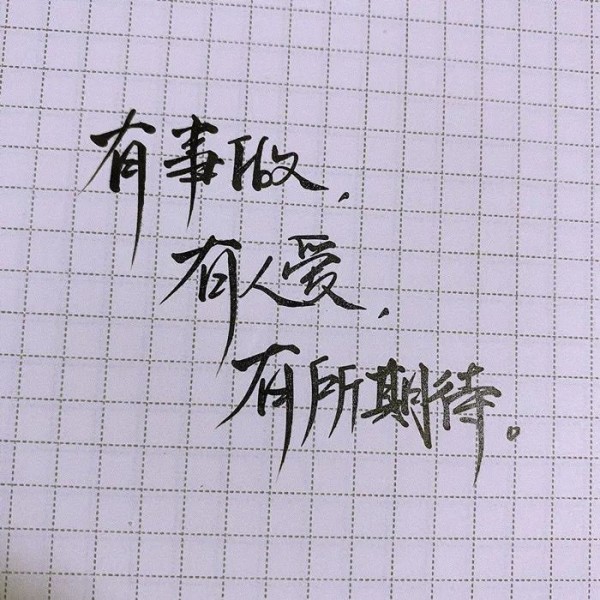 有事做,
有人爱,
有所期待。